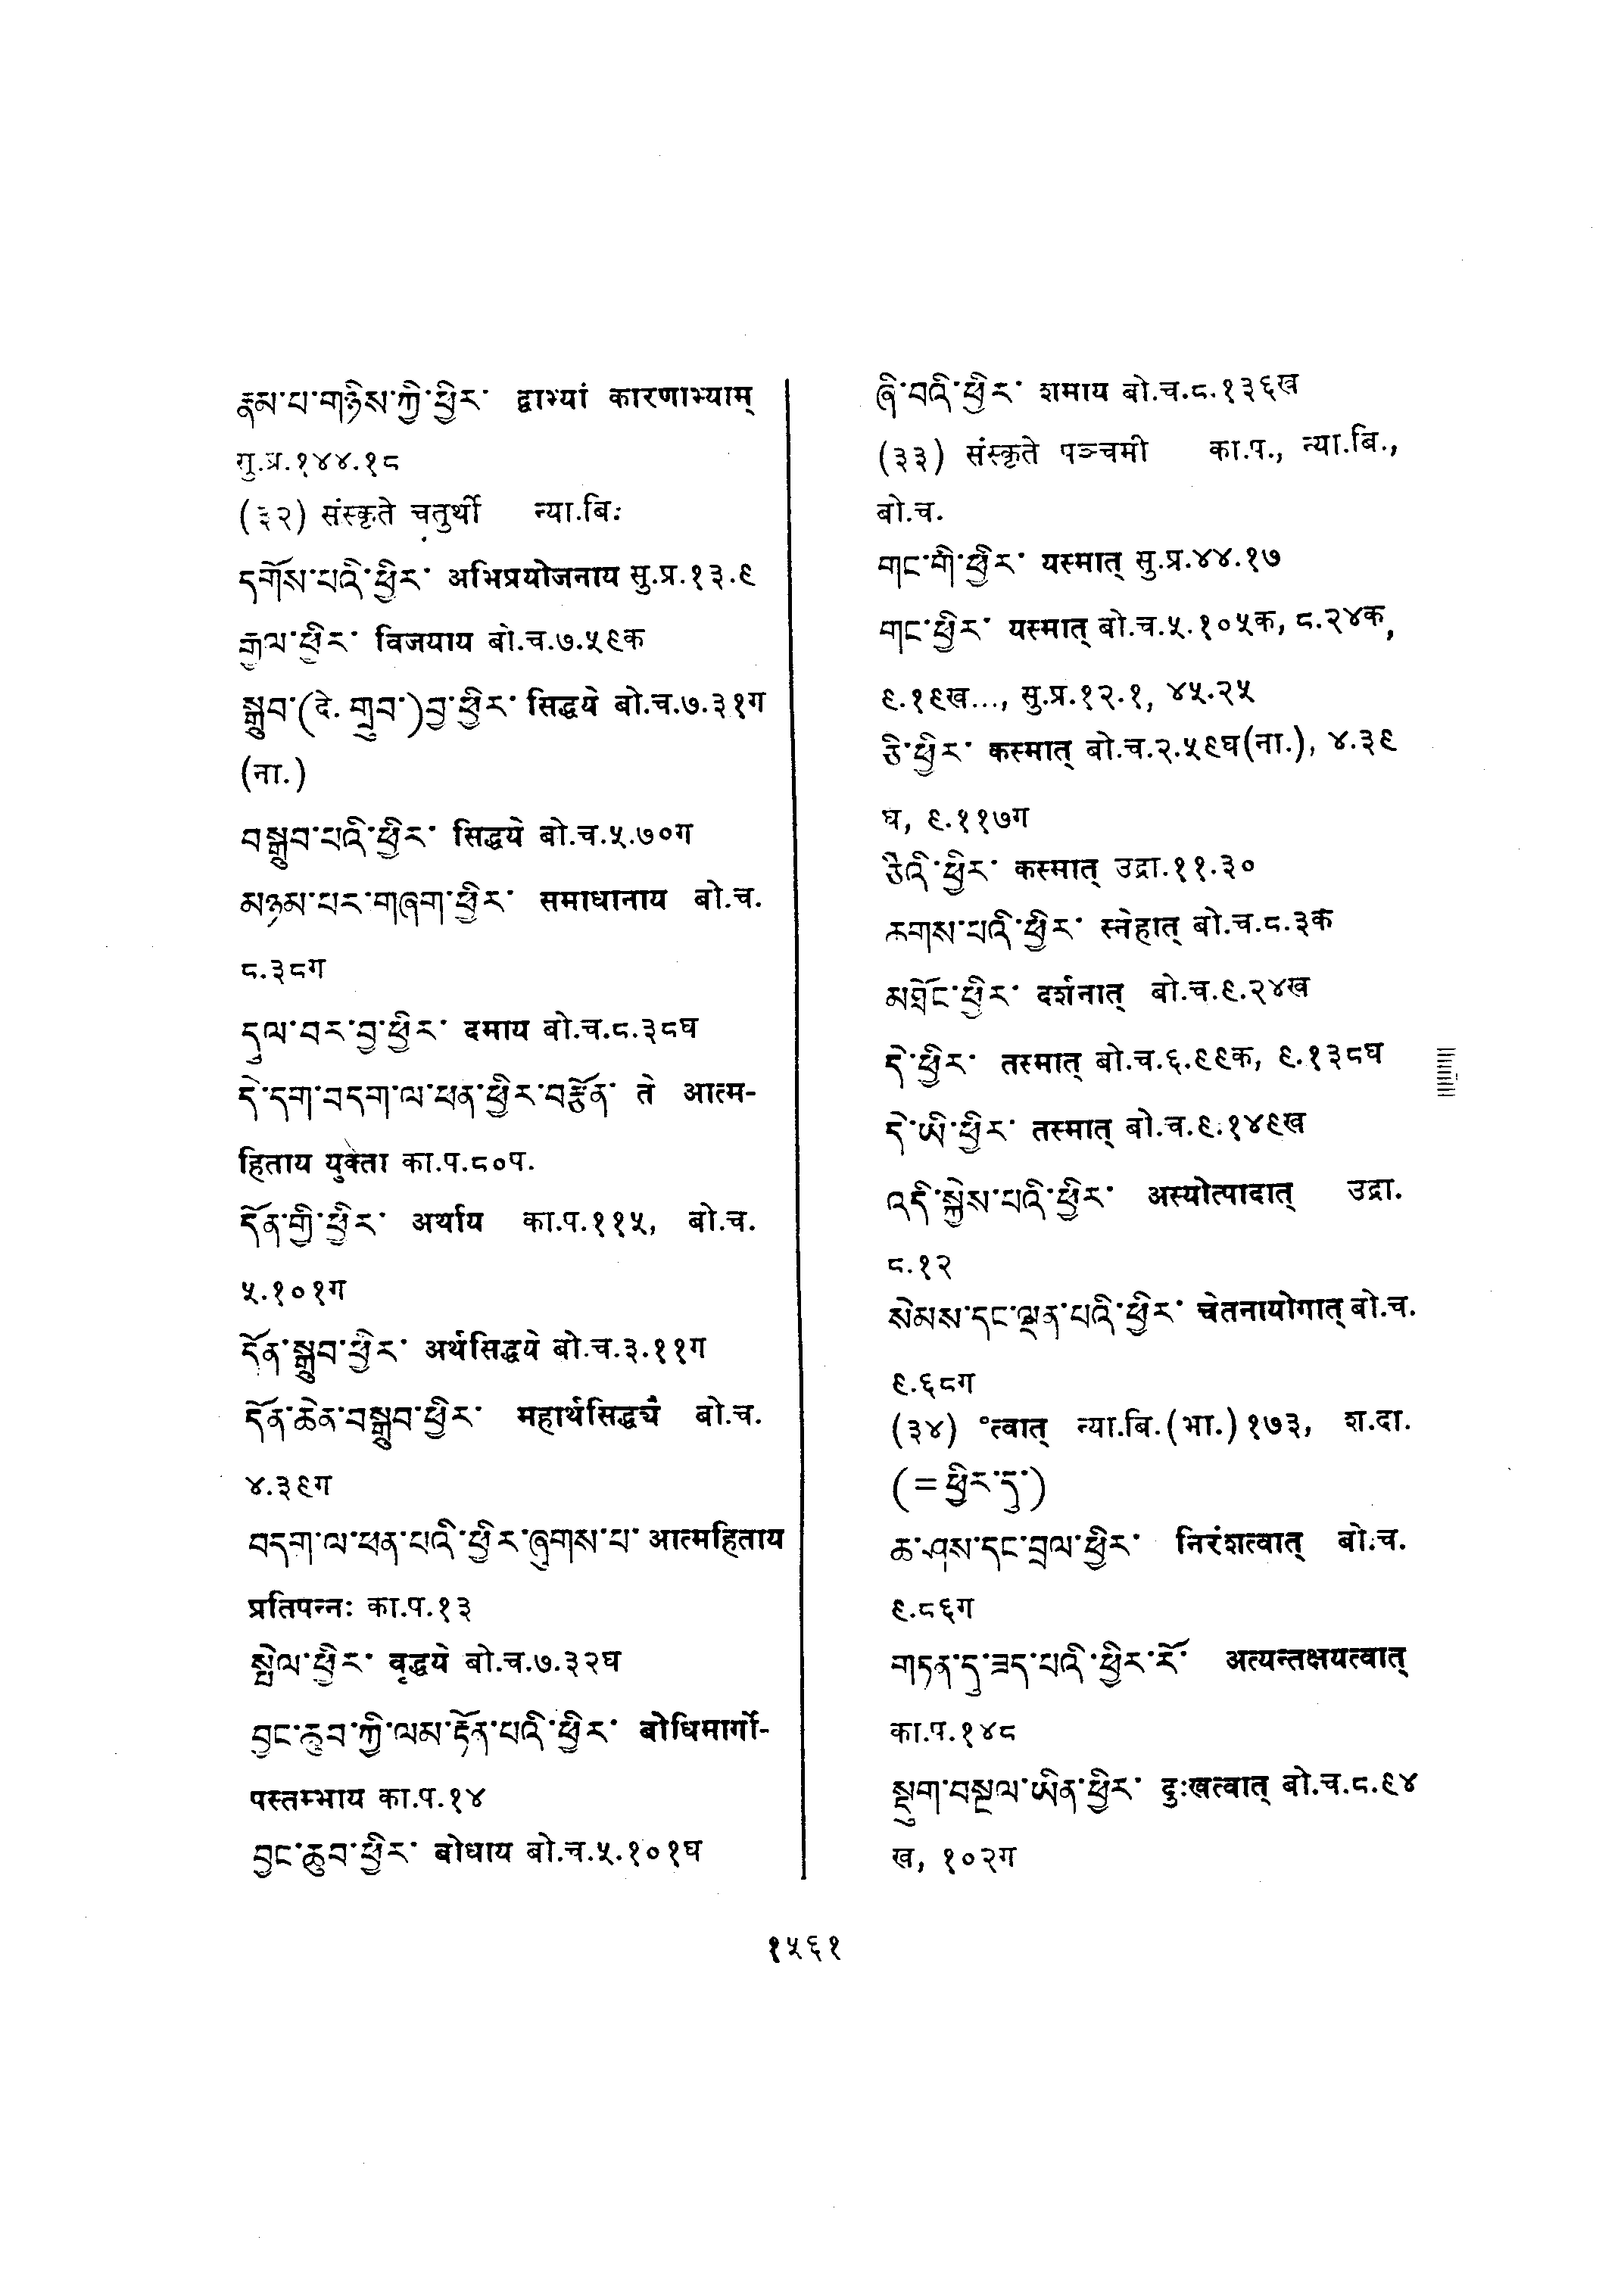 རྣམ་པ་གཉིས་ཀྱི་ཕྱིར་ द्वाभ्यां कारणाभ्याम्
गु.प्र.१४४.१८
(३२) संस्कृते चतुर्थी न्या.बि:
དགོས་པའི་ཕྱིར་ अभिप्रयोजनाय सु.प्र.१३.९
རྒྱལ་ཕྱིར་ विजयाय बो.च.७.५९क
སྒྲུབ་(दे. གྲུབ་)བྱ་ཕྱིར་ सिद्धये बो.च.७.३१ग
(ना.)
བསྒྲུབ་པའི་ཕྱིར་ सिद्धये बो.च.५.७०ग
མཉམ་པར་གཞག་ཕྱིར་ समाधानाय बो.च.
८.३८ग
དུལ་བར་བྱ་ཕྱིར་ दमाय बो.च.८.३८घ
དེ་དག་བདག་ལ་ཕན་ཕྱིར་བརྩོན་ ते आत्म-
हिताय युक्ता का.प.८०प.
དོན་གྱི་ཕྱིར་ अर्थाय का.प.११५, बो.च.
५.१०१ग
དོན་སྒྲུབ་ཕྱིར་ अर्थसिद्धये बो.च.३.११ग
དོན་ཆེན་བསྒྲུབ་ཕྱིར་ महार्थसिद्ध्यै बो.च.
४.३९ग
བདག་ལ་ཕན་པའི་ཕྱིར་ཞུགས་པ་ आत्महिताय
प्रतिपन्नः का.प.१३
སྤེལ་ཕྱིར་ वृद्धये बो.च.७.३२घ
བྱང་ཆུབ་ཀྱི་ལམ་རྟོན་པའི་ཕྱིར་ बोधिमार्गो-
पस्तम्भाय का.प.१४
བྱང་ཆུབ་ཕྱིར་ बोधाय बो.च.५.१०१घ
ཞི་བའི་ཕྱིར་ शमाय बो.च.८.१३६ख
(३३) संस्कृते पञ्चमी का.प., न्या.बि.,
बो.च.
གང་གི་ཕྱིར་ यस्मात् सु.प्र.४४.१७
གང་ཕྱིར་ यस्मात् बो.च.५.१०५क, ८.२४क,
९.१९ख..., सु.प्र.१२.१, ४५.२५
ཅི་ཕྱིར་ कस्मात् बो.च.२.५९घ(ना.), ४.३९
घ, ९.११७ग
ཅིའི་ཕྱིར་ कस्मात् उद्रा.११.३०
ཆགས་པའི་ཕྱིར་ स्नेहात् बो.च.८.३क
མཐོང་ཕྱིར་ दर्शनात् बो.च.९.२४ख
དེ་ཕྱིར་ तस्मात् बो.च.६.९९क, ९.१३८घ
དེ་ཡི་ཕྱིར་ तस्मात् बो.च.९.१४९ख
འདི་སྐྱེས་པའི་ཕྱིར་ अस्योत्पादात् उद्रा.
८.१२
སེམས་དང་ལྡན་པའི་ཕྱིར་ चेतनायोगात् बो.च.
९.६८ग
(३४) °त्वात् न्या.बि.(भा.)१७३, श.दा.
(=ཕྱིར་དུ་)
ཆ་ཤས་དང་བྲལ་ཕྱིར་ निरंशत्वात् बो.च.
९.८६ग
གཏན་དུ་ཟད་པའི་ཕྱིར་རོ་ अत्यन्तक्षयत्वात्
का.प.१४८
སྡུག་བསྔལ་ཡིན་ཕྱིར་ दुःखत्वात् बो.च.८.९४
ख, १०२ग
१५६१